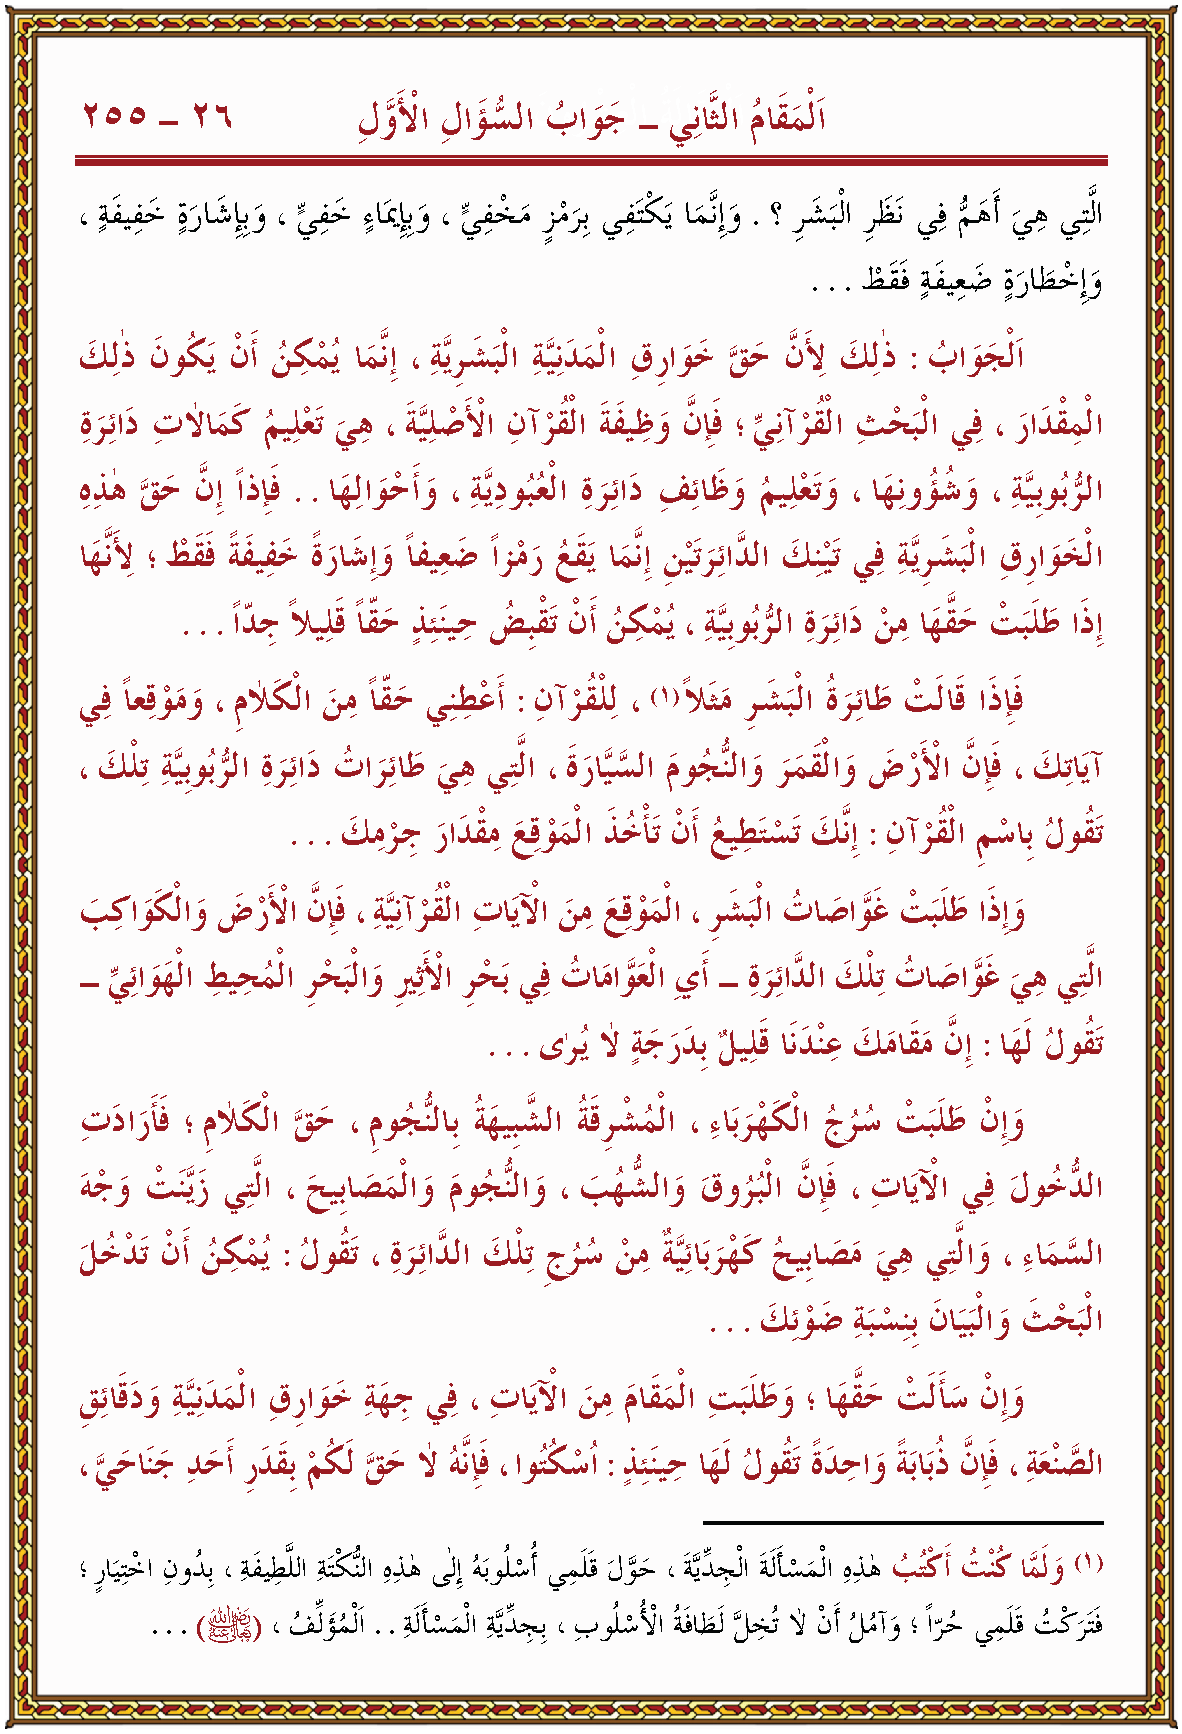 اَلْمَقَامُ الثَّانِي ـ جَوَابُ السُّؤَالِ الْأَوَّلِ ٢٦ ـ ٢٥٥
الَّتِي هِيَ أَهَمُّ فِي نَظَرِ الْبَشَرِ ؟ . وَإِنَّمَا يَكْتَفِي بِرَمْزٍ مَخْفِيٍّ ، وَبِإِيمَاءٍ خَفِيٍّ ، وَبِإِشَارَةٍ خَفِيفَةٍ ،
وَإِخْطَارَةٍ ضَعِيفَةٍ فَقَطْ . . .
اَلْجَوَابُ : ذٰلِكَ لِأَنَّ حَقَّ خَوَارِقِ الْمَدَنِيَّةِ الْبَشَرِيَّةِ ، إِنَّمَا يُمْكِنُ أَنْ يَكُونَ ذٰلِكَ
الْمِقْدَارَ ، فِي الْبَحْثِ الْقُرْآنِيِّ ؛ فَإِنَّ وَظِيفَةَ الْقُرْآنِ الْأَصْلِيَّةَ ، هِيَ تَعْلِيمُ كَمَالَاٰتِ دَائِرَةِ
الرُّبُوبِيَّةِ ، وَشُؤُونِهَا ، وَتَعْلِيمُ وَظَائِفِ دَائِرَةِ الْعُبُودِيَّةِ ، وَأَحْوَالِهَا . . فَإِذاً إِنَّ حَقَّ هٰذِهِ
الْخَوَارِقِ الْبَشَرِيَّةِ فِي تَيْنِكَ الدَّائِرَتَيْنِ إِنَّمَا يَقَعُ رَمْزاً ضَعِيفاً وَإِشَارَةً خَفِيفَةً فَقَطْ ؛ لِأَنَّهَا
إِذَا طَلَبَتْ حَقَّهَا مِنْ دَائِرَةِ الرُّبُوبِيَّةِ ، يُمْكِنُ أَنْ تَقْبِضُ حِينَئِذٍ حَقّاً قَلِيلاً جِدّاً . . .
فَإِذَا قَالَتْ طَائِرَةُ الْبَشَرِ مَثَلاً (١) ، لِلْقُرْآنِ : أَعْطِنِي حَقّاً مِنَ الْكَلَاٰمِ ، وَمَوْقِعاً فِي
آيَاتِكَ ، فَإِنَّ الْأَرْضَ وَالْقَمَرَ وَالنُّجُومَ السَّيَّارَةَ ، الَّتِي هِيَ طَائِرَاتُ دَائِرَةِ الرُّبُوبِيَّةِ تِلْكَ ،
تَقُولُ بِاسْمِ الْقُرْآنِ : إِنَّكَ تَسْتَطِيعُ أَنْ تَأْخُذَ الْمَوْقِعَ مِقْدَارَ جِرْمِكَ . . .
وَإِذَا طَلَبَتْ غَوَّاصَاتُ الْبَشَرِ ، الْمَوْقِعَ مِنَ الْآيَاتِ الْقُرْآنِيَّةِ ، فَإِنَّ الْأَرْضَ وَالْكَوَاكِبَ
الَّتِي هِيَ غَوَّاصَاتُ تِلْكَ الدَّائِرَةِ ـ أَيِ الْعَوَّامَاتُ فِي بَحْرِ الْأَثِيرِ وَالْبَحْرِ الْمُحِيطِ الْهَوَائِيِّ ـ
تَقُولُ لَهَا : إِنَّ مَقَامَكَ عِنْدَنَا قَلِيلٌ بِدَرَجَةٍ لَاٰ يُرٰى . . .
وَإِنْ طَلَبَتْ سُرُجُ الْكَهْرَبَاءِ ، الْمُشْرِقَةُ الشَّبِيهَةُ بِالنُّجُومِ ، حَقَّ الْكَلَاٰمِ ؛ فَأَرَادَتِ
الدُّخُولَ فِي الْآيَاتِ ، فَإِنَّ الْبُرُوقَ وَالشُّهُبَ ، وَالنُّجُومَ وَالْمَصَابِيحَ ، الَّتِي زَيَّنَتْ وَجْهَ
السَّمَاءِ ، وَالَّتِي هِيَ مَصَابِيحُ كَهْرَبَائِيَّةٌ مِنْ سُرُجِ تِلْكَ الدَّائِرَةِ ، تَقُولُ : يُمْكِنُ أَنْ تَدْخُلَ
الْبَحْثَ وَالْبَيَانَ بِنِسْبَةِ ضَوْئِكَ . . .
وَإِنْ سَأَلَتْ حَقَّهَا ؛ وَطَلَبَتِ الْمَقَامَ مِنَ الْآيَاتِ ، فِي جِهَةِ خَوَارِقِ الْمَدَنِيَّةِ وَدَقَائِقِ
الصَّنْعَةِ ، فَإِنَّ ذُبَابَةً وَاحِدَةً تَقُولُ لَهَا حِينَئِذٍ : اُسْكُتُوا ، فَإِنَّهُ لَاٰ حَقَّ لَكُمْ بِقَدَرِ أَحَدِ جَنَاحَيَّ ،
(١) وَلَمَّا كُنْتُ أَكْتُبُ هٰذِهِ الْمَسْأَلَةَ الْجِدِّيَّةَ ، حَوَّلَ قَلَمِي أُسْلُوبَهُ إِلَى هٰذِهِ النُّكْتَةِ اللَّطِيفَةِ ، بِدُونِ اخْتِيَارٍ ؛
فَتَرَكْتُ قَلَمِي حُرّاً ؛ وَآمُلُ أَنْ لَاٰ تُخِلَّ لَطَافَةُ الْأُسْلُوبِ ، بِجِدِّيَّةِ الْمَسْأَلَةِ . . اَلْمُؤَلِّفُ ، ( ) . . .